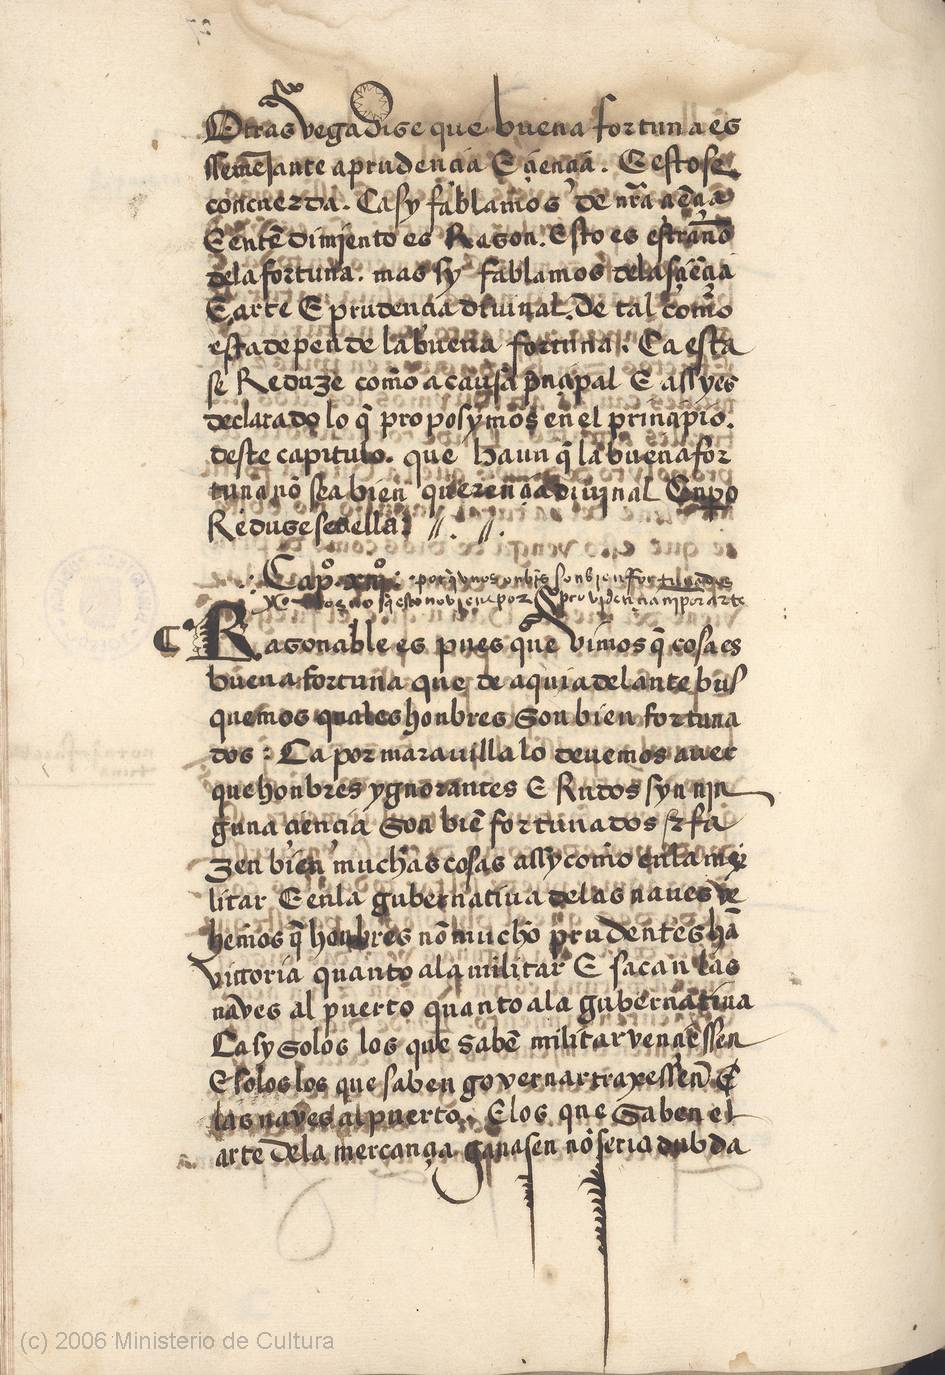 Otras vegadise que buena fortuna es
semejante a prudencia E çiençia. E esto se
concuerda. Ca sy fablamos de nr̃a çiẽçia
E entẽdimjento es Rason. Esto es estraño
dela fortuna. mas sy fablamos dela sçiẽçia
E arte E prudencia diuinal. De tal com̃o
esta depende la buena fortuna. Ca esta
se Reduze com̃o a causa prĩçipal E assy es
declarado lo q̃ proposymos en el prinçipio.
deste capitulo. que haun q̃ la buena for
tuna nõ sea bien querençia diuinal Enpo
Reduse se a ella
Capº. xiijº.
Rasonable es pues que vimos q̃ cosa es
buena fortuna que de aqui adelante bus
quemos quales honbres Son bien fortuna
dos: Ca por marauilla lo deuemos auer
que honbres ygnorantes E Rudos syn nin
guna ciencia Son biẽ fortunados E fa
zen bien muchas cosas assy com̃o enla mj
litar E enla gubernatiua delas naues ve
hemos q̃ honbres nõ mucho prudentes hã
vittoria quanto ala militar E sacan las
naves al puerto quanto ala gubernatiua
Ca sy Solos los que sabẽ militar vençiessen
E solos los que saben governar traxessen E
las naves al puerto. E los que Saben el
arte dela mercançia ganasen nõ seria dubda
(c) 2006 Ministerio de Cultura